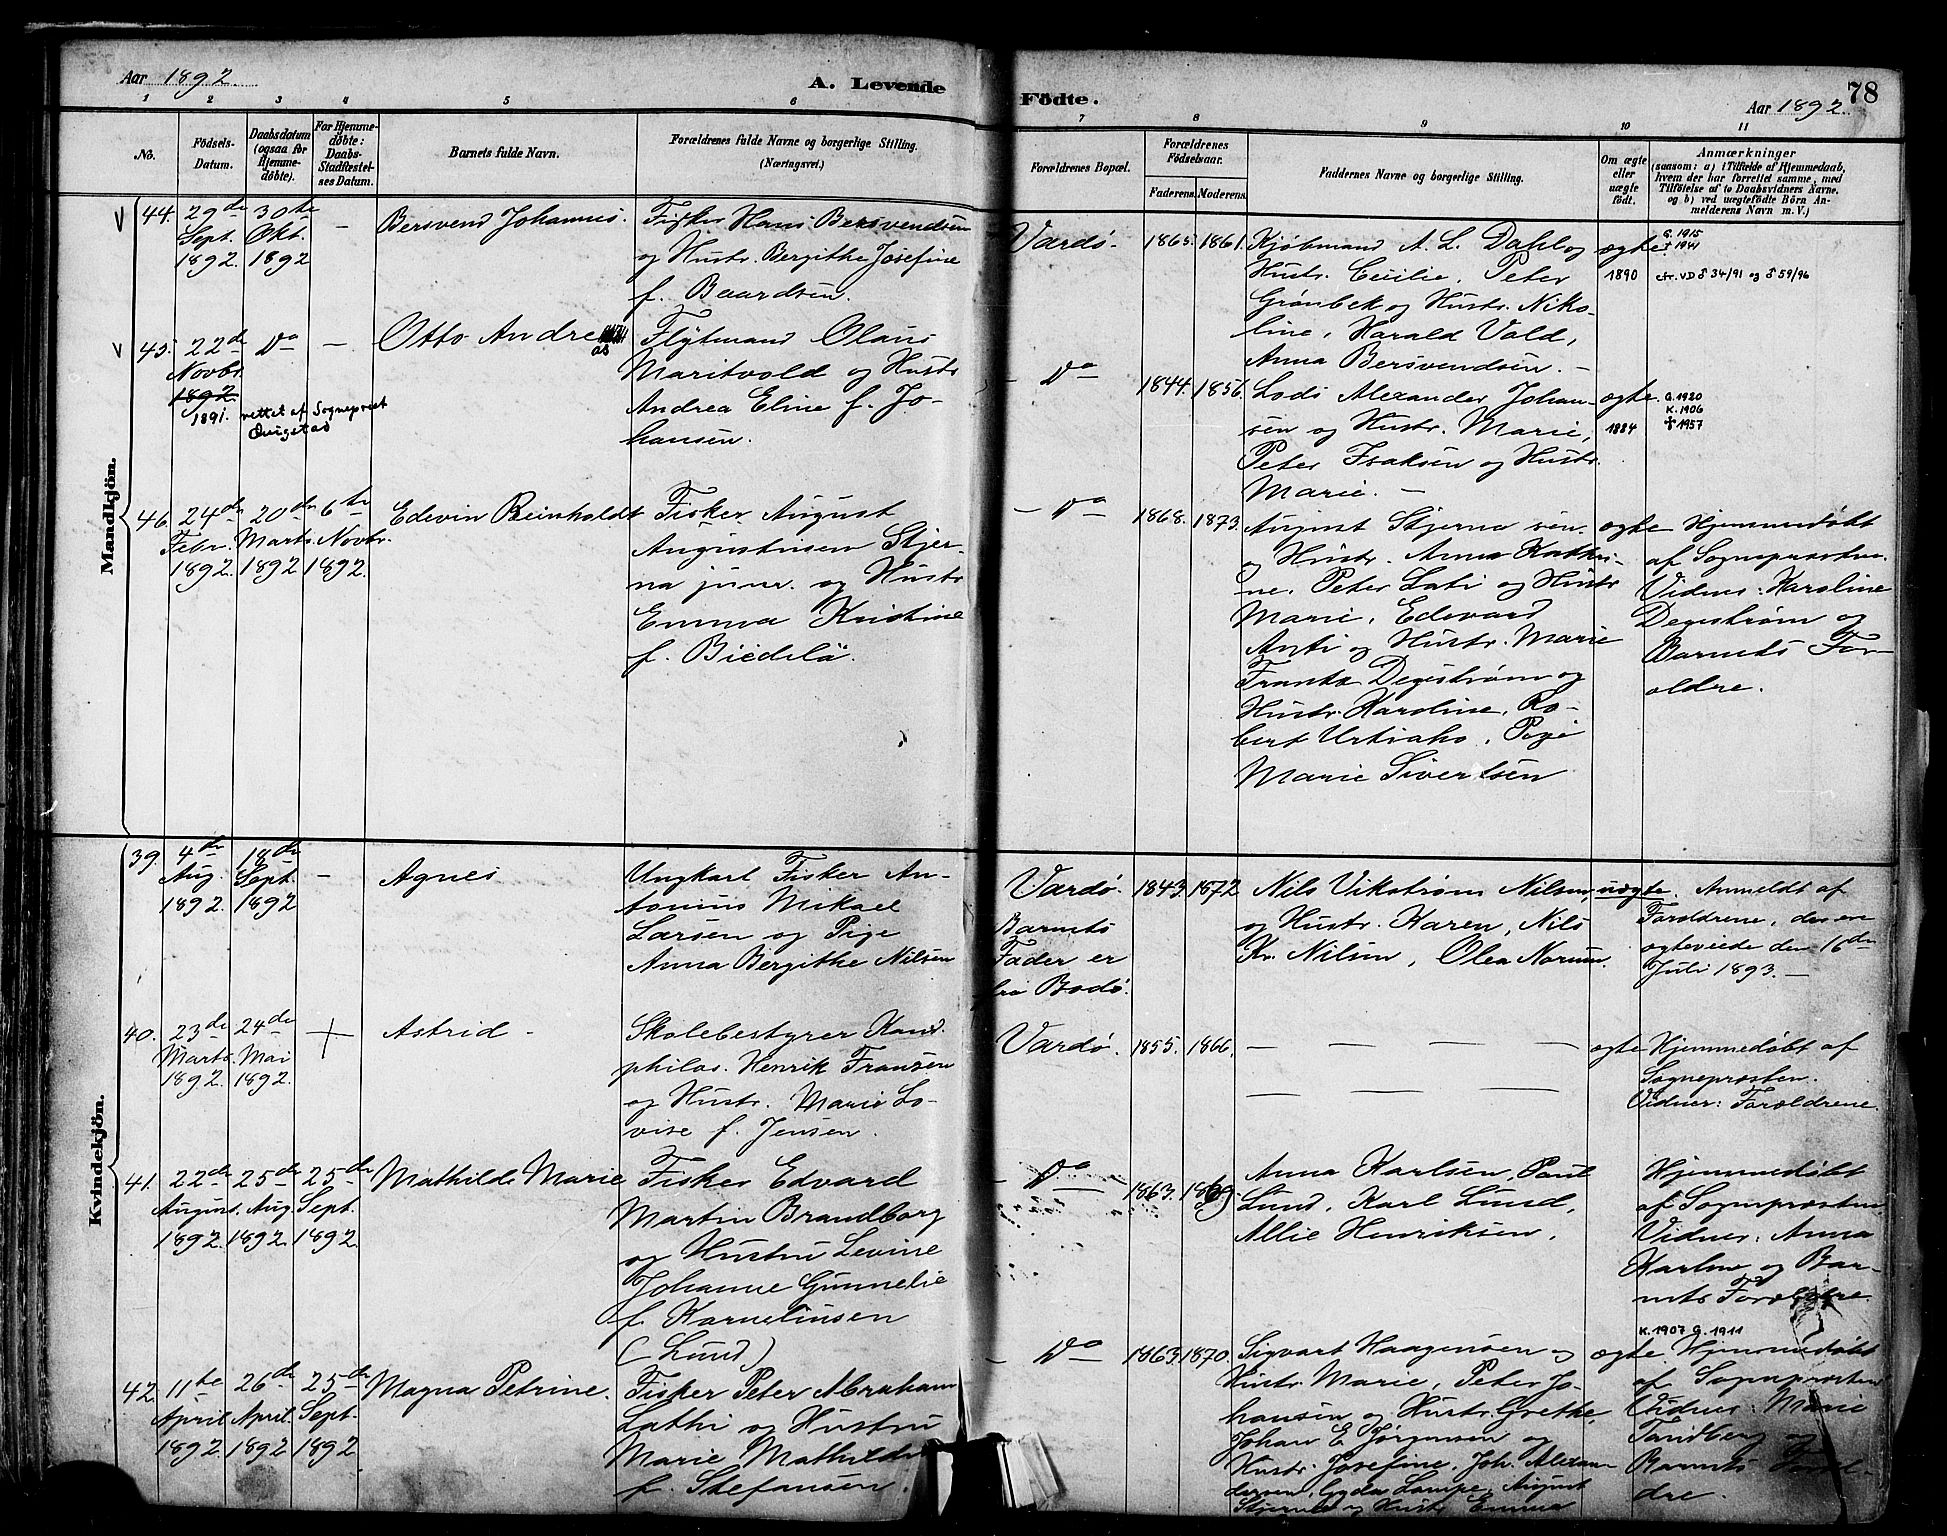 Aar 1892.
A. Levende Födte.
Aar 1892.
78
1 2 3 4 5 6 7 8 9 10 11
No.
Födsels-
Datum.
Daabsdatum
(ogsaa for
Hjemme-
döbte).
For Hjemme-
döbte:
Daabs-
Stadfæstel-
ses Datum.
Barnets fulde Navn.
Forældrenes fulde Navne og borgerlige Stilling.
(Næringsvei.)
Forældrenes Bopæl.
Forældrenes
Fødselsaar.
Faderens. Moderens.
Faddernes Navne og borgerlige Stilling.
Om ægte
eller
uægte
født.
Anmærkninger
(saasom: a) i Tilfælde af Hjemmedaab,
hvem der har forrettet samme, med
Tilföielse af to Daabsvidners Navne.
og b) ved uægtefödte Börn An-
melderens Navn m. V.)
Mandkjön.
44.
29de
Sept.
1892.
30te
Okt.
1892
–
Bersvend Johannes.
Fisker Hans Bersvendsen
og Hustr. Bergithe Josefine
f. Baardsen.
Vardø.
1865.
1861.
Kjøbmand A. L. Dahl og
Hustr. Cecilie, Peter
Grønbek og Hustr. Niko-
line, Harald Vold,
Anna Bersvendsen. –
ægte.
1890
G. 1915
† 1941
cfr. VD ♂ 34/91 og ♂ 59/96
45.
22de
Novbr.
1892.
1891. rettet af Sogneprest
Qvigstad
Do
–
Otto Andreas
Flytmand Olaus
Maritvold og Hustr
Andrea Eline f. Jo-
hansen.
– Do –
1844.
1856.
Lods Alexander Johan-
sen og Hustr. Marie,
Peter Isaksen og Hustr.
Marie. –
ægte.
1884
G. 1920
K. 1906
1957
46.
24de
Febr.
1892.
20de
Marts
1892
6te
Novbr.
1892.
Edevin Reinholdt
Fisker August
Augustinsen Stjer-
na junr. og Hustr
Emma Kristine
f. Biedelä.
– Do –
1868.
1873.
August Stjerna sen.
og Hustr. Anna Kathri-
ne, Peter Lati og Hustr
Marie, Edevard
Anti og Hustr. Marie
Frants Degestrøm og
Hustr. Karoline, Ro-
bert Urtiaho, Pige
Marie Sivertsen
ægte
Hjemmedøbt
af Sognepræsten.
Vidner: Karoline
Degestrøm og
Barnets For-
ældre.
Kvindekjön.
39.
4de
Aug.
1892.
18de
Sept.
1892
–
Agnes
Ungkarl Fisker An-
tonius Mikael
Larsen og Pige
Anna Bergithe Nilsen
Vardø.
Barnets
Fader er
fra Bodø.
1843.
1872
Nils Vikstrøm Nilsen,
og Hustr. Karen, Nils
Kr. Nilsen, Olea Norum.
uægte.
Anmeldt af
Forældrene, der ere
ægteviede den 16de
Juli 1893. –
40.
23de
Marts.
1892.
24de
Mai
1892.
+
Astrid –
Skolebestyrer Kand.
philos. Henrik Fransen
og Hustr. Marie Lo-
vise f. Jensen.
Vardø.
1855.
1866.
– – – –
– – –
ægte
Hjemmedøbt af
Sognepræsten.
Vidner: Forældrene.
41.
22de
August.
1892.
25de
Aug.
1892.
25de
Sept.
1892.
Mathilde Marie
Fisker Edvard
Martin Brandborg
og Hustru Levine
Johanne Gunnelie
f. Kornelinsen
(Lund)
– Do –
1863.
1869.
Anna Karlsen, Paul
Lund, Karl Lund,
Allie Henriksen,
Hjemmedøbt
af Sognepræsten.
Vidner: Anna
Karlsen og Bar-
nets Forældre.
42.
11te
April
1892
26de
April.
1892
25de
Sept.
1892
Magna Petrine.
Fisker Peter Abraham
Lathi og Hustru
Marie Mathilde
f. Stefansen.
– Do –
1863.
1870.
Sigvart Haagensen og
Hustr. Marie, Peter Jo-
hansen og Hustr. Grethe
Johan E. Jørgensen og
Hustr. Josefine, Joh. Alexan-
dersen, Gyda Lampe, August
Stjerna og Hustr. Emma
ægte.
K. 1907 G. 1911
Hjemmedøbt
af Sognepræsten
Vidner: Marie
Tandberg og
Barnets Foræl-
dre.